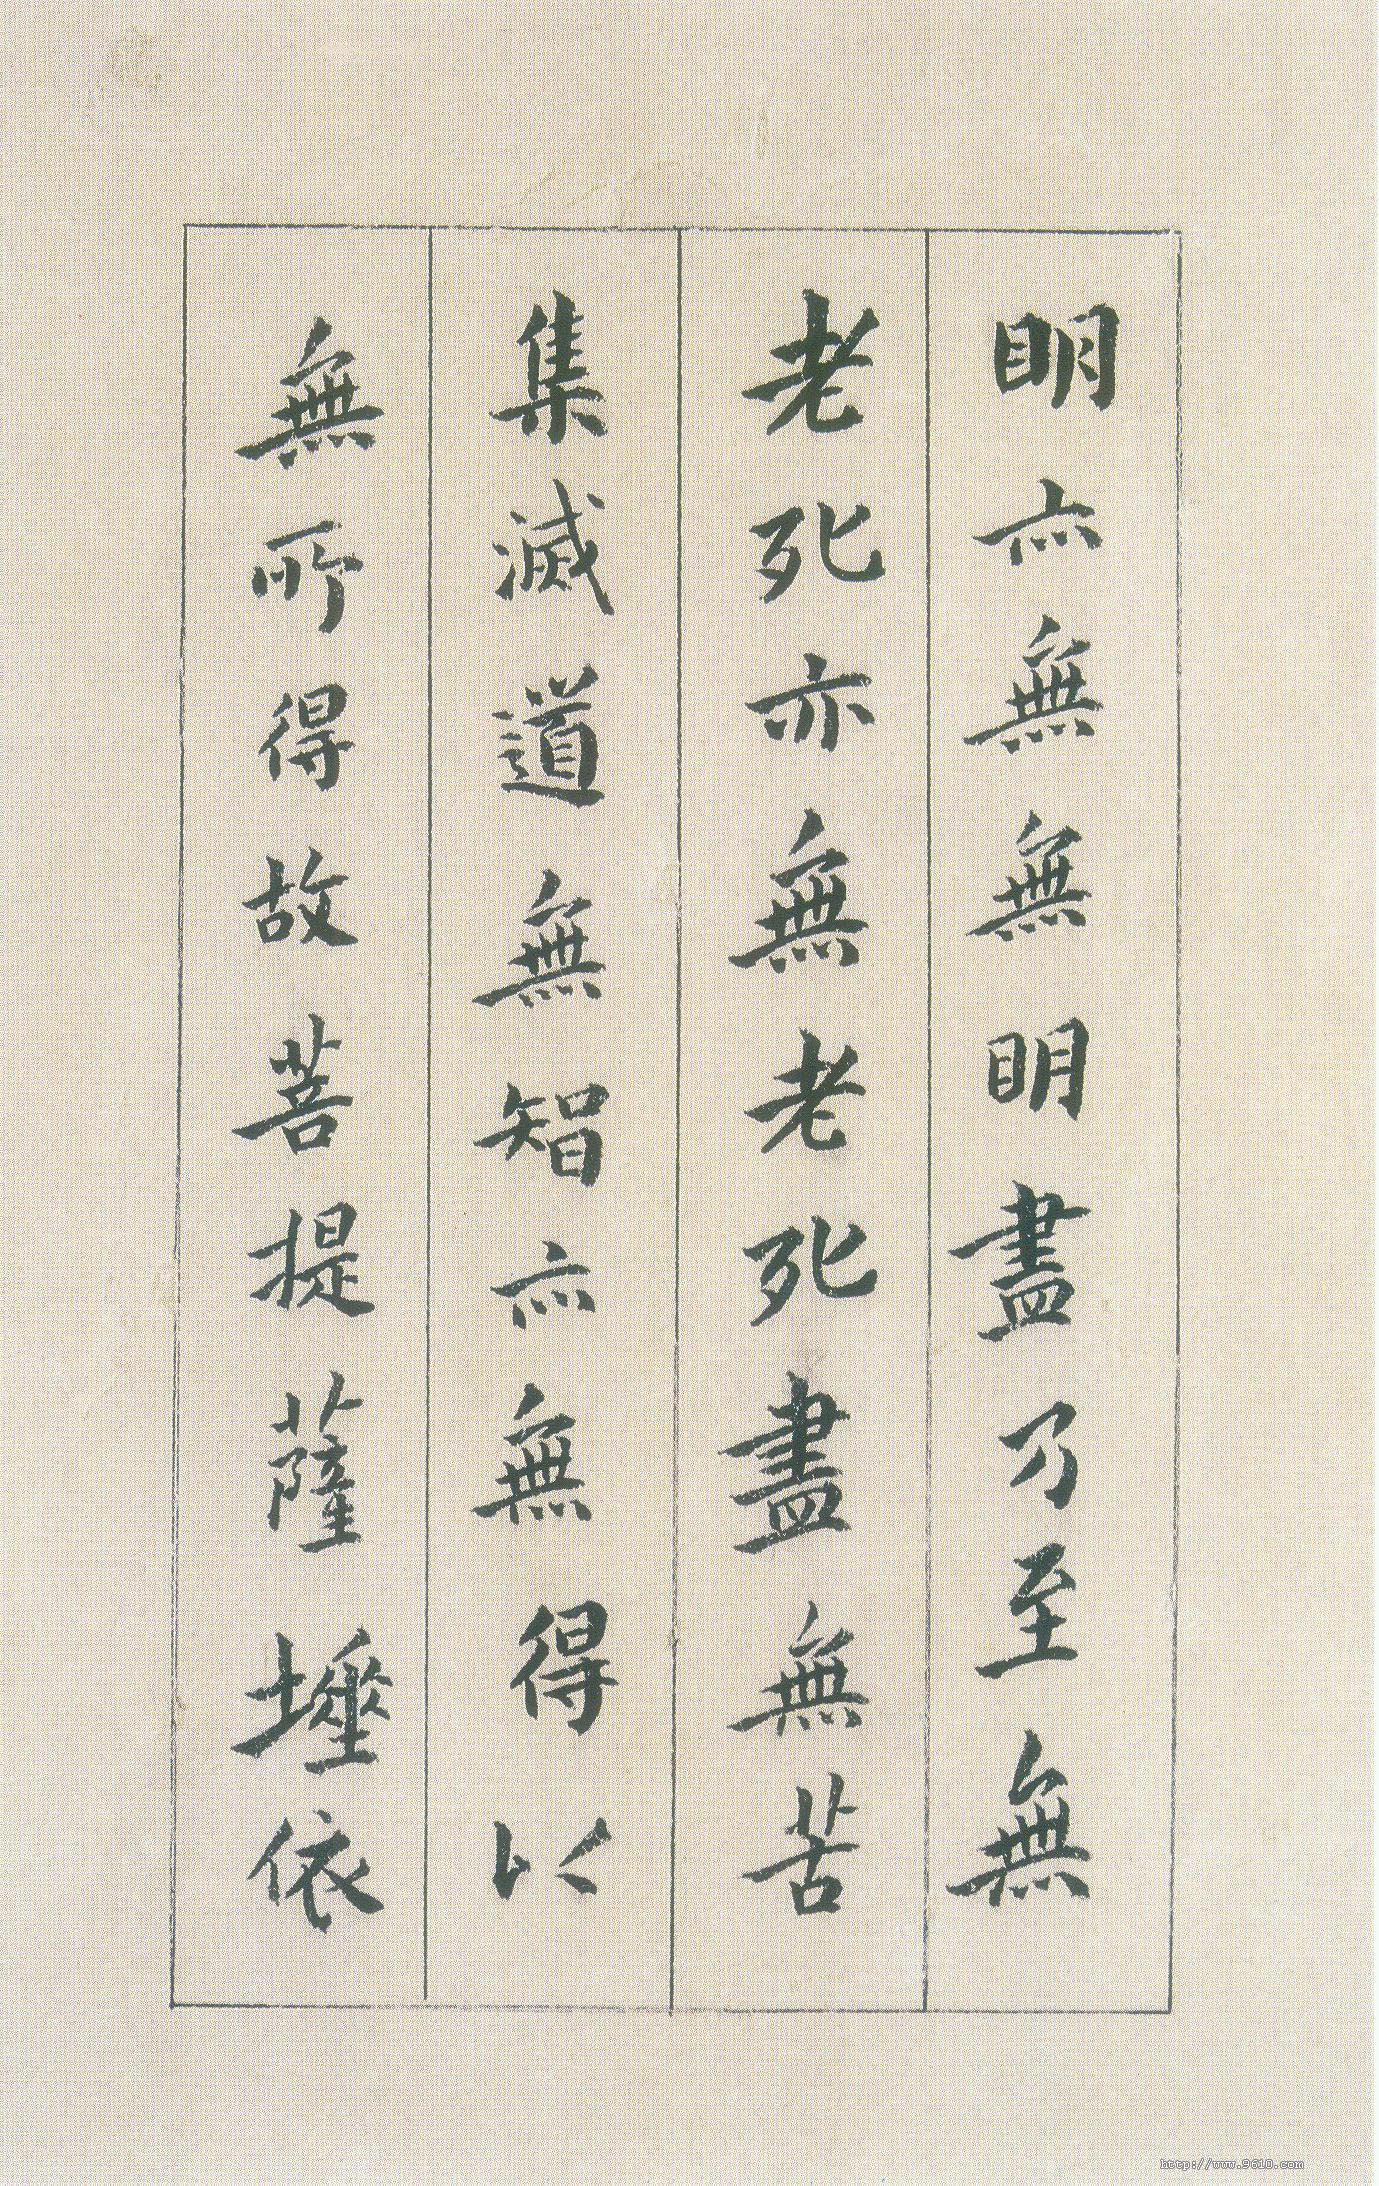 明亦無無明盡乃至無
老死亦無老死盡無苦
集滅道無智亦無得以
無所得故菩提薩埵依
http://www.9610.com